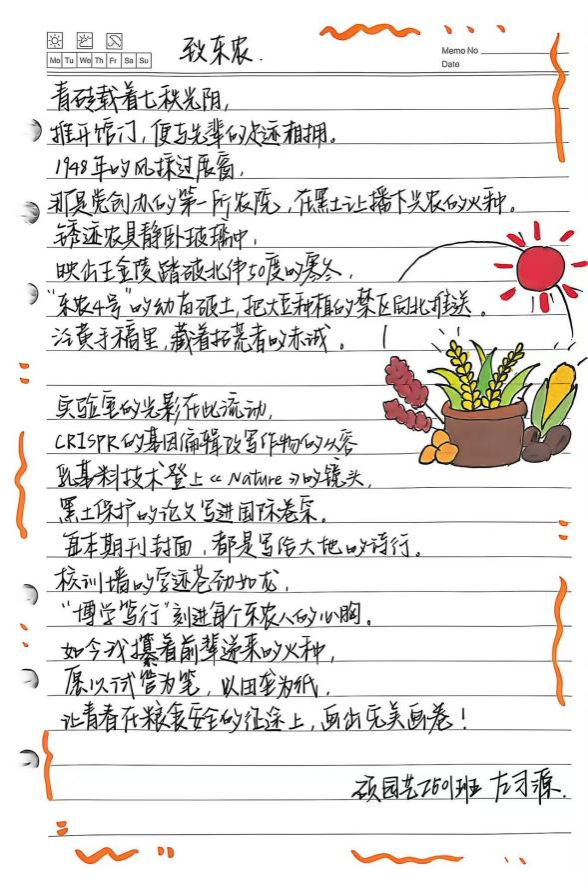 致东农.
Memo No
Date
Mo Tu We Th Fr Sa Su
青砖载着七秩光阴,
推开馆门,便与先辈的足迹相拥。
1948年的风掠过展窗,
那是党创办的第一所农院,在黑土让播下兴农的火种。
锈迹农具静卧玻璃中,
映出王金陵踏破北纬50度的寒冬,
“东农4号”的幼苗破土,把大豆种植的禁区向北推送。
泛黄手稿里,藏着拓荒者的赤诚。
实验室的光影在此流动,
CRISPR的基因编辑改写作物的从容
乳基料技术登上《Nature》的镜头,
黑土保护的论文写进国际卷宗。
每本期刊封面,都是写给大地的诗行。
校训墙的字迹苍劲如龙,
“博学笃行”刻进每个东农人的心胸。
如今我攥着前辈递来的火种,
愿以试管为笔,以田垄为纸,
让青春在粮食安全的征途上,画出完美画卷!
硕园艺2501班 左习源.